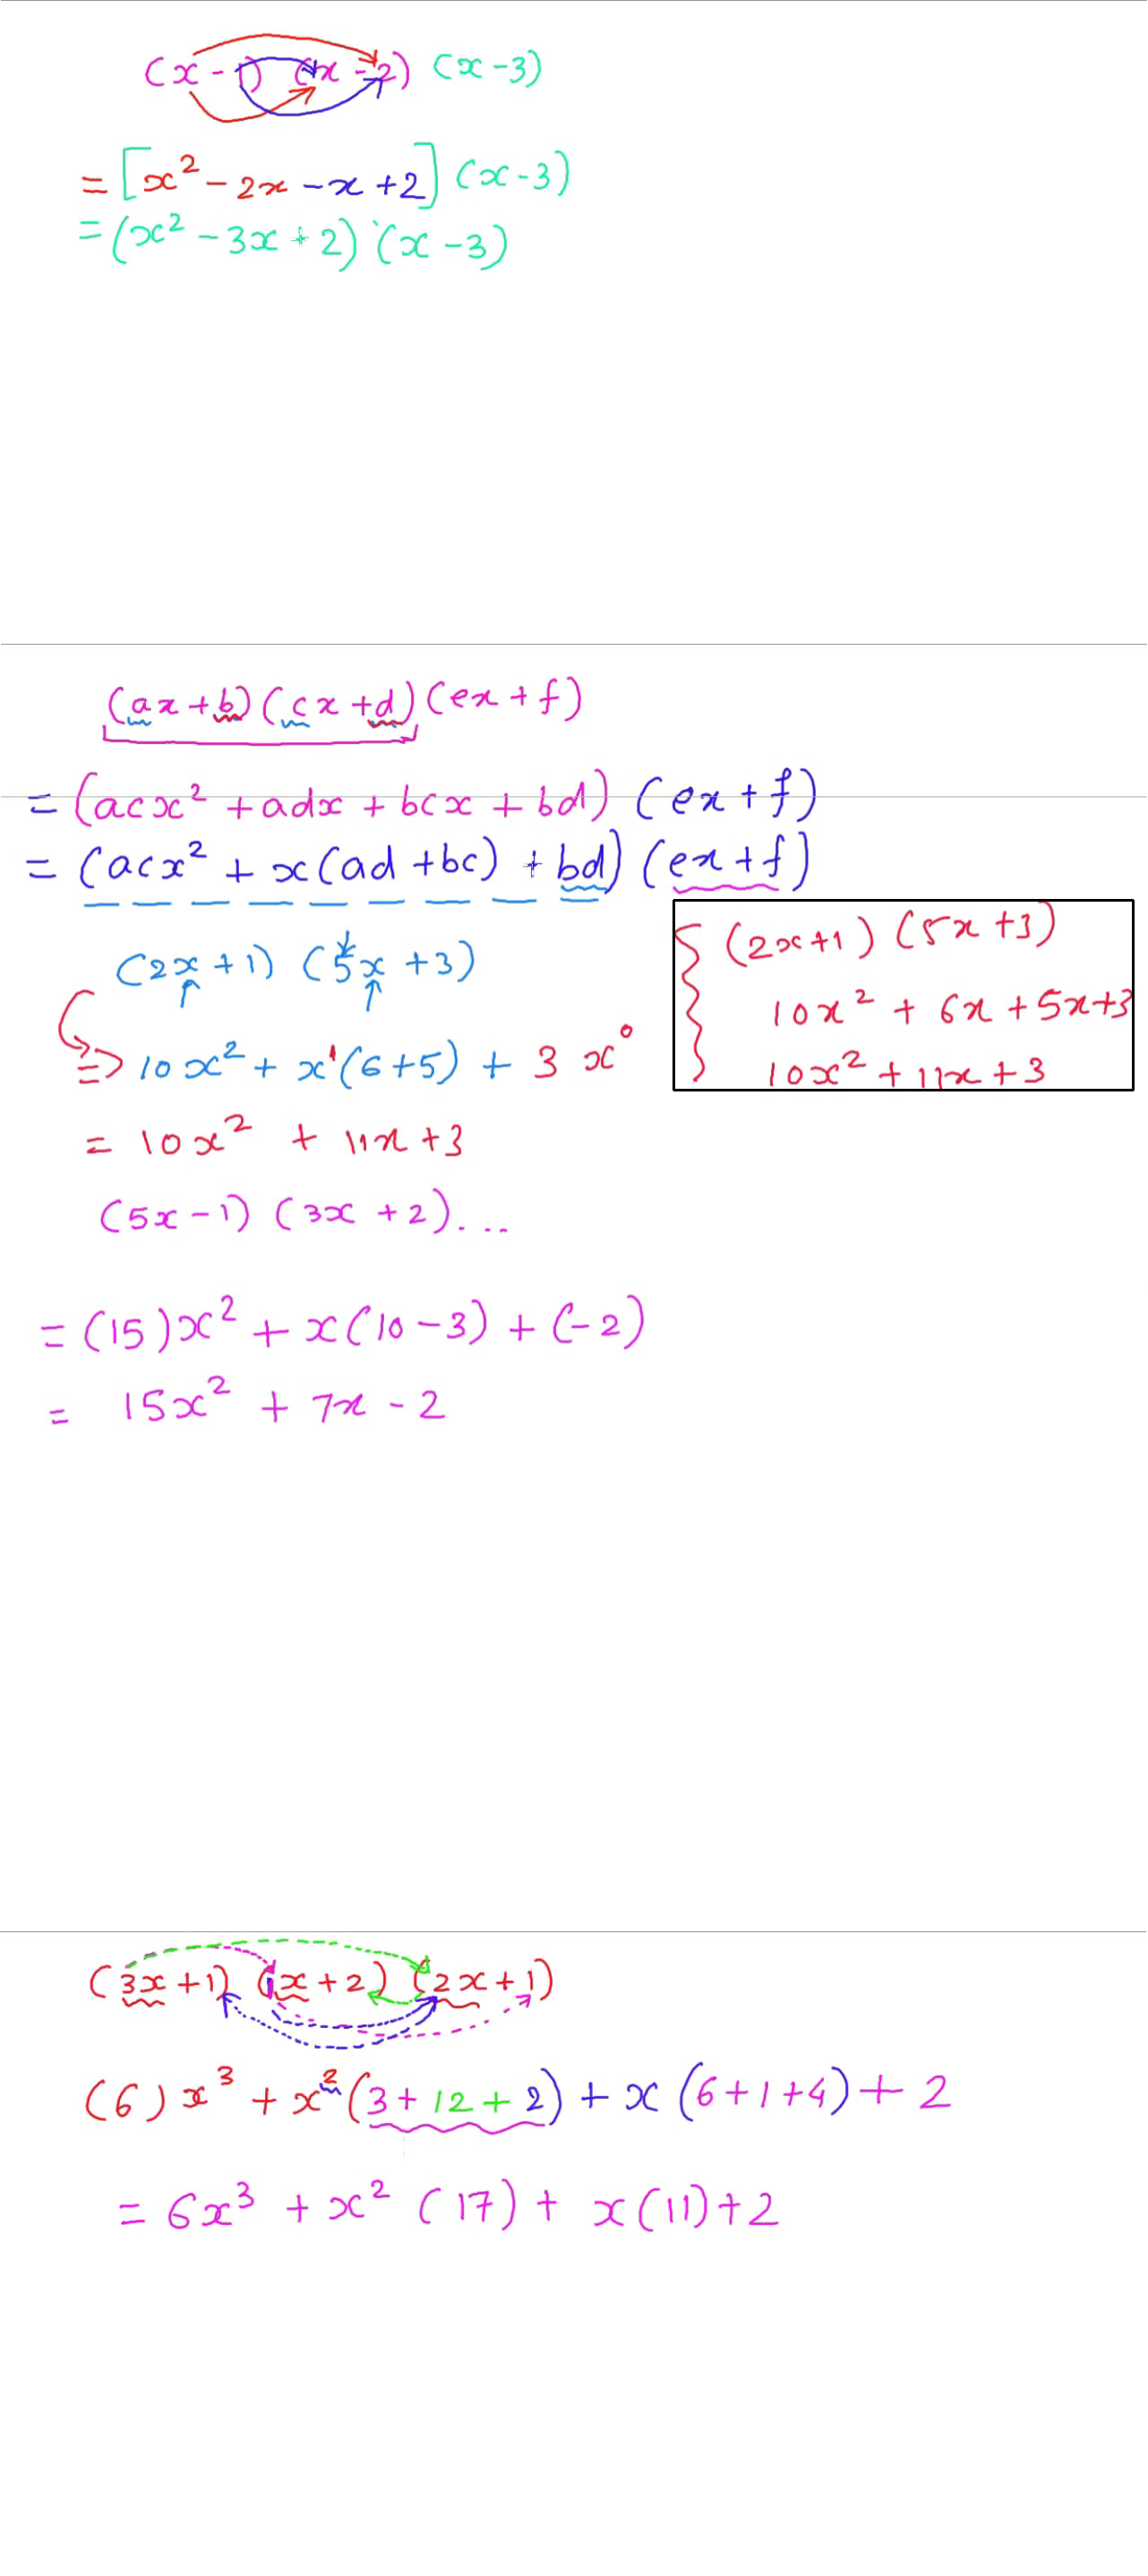 (x - 1) (x - 2) (x - 3)
= [x² - 2x - x + 2] (x - 3)
= (x² - 3x + 2) (x - 3)
(ax + b) (cx + d) (ex + f)
= (acx² + adx + bcx + bd) (ex + f)
= (acx² + x(ad + bc) + bd) (ex + f)
(2x + 1) (5x + 3)
=> 10x² + x¹(6 + 5) + 3x⁰
= 10x² + 11x + 3
(2x + 1) (5x + 3)
10x² + 6x + 5x + 3
10x² + 11x + 3
(5x - 1) (3x + 2)...
= (15)x² + x(10 - 3) + (-2)
= 15x² + 7x - 2
(3x + 1) (1x + 2) (2x + 1)
(6)x³ + x²(3 + 12 + 2) + x(6 + 1 + 4) + 2
= 6x³ + x² (17) + x(11) + 2